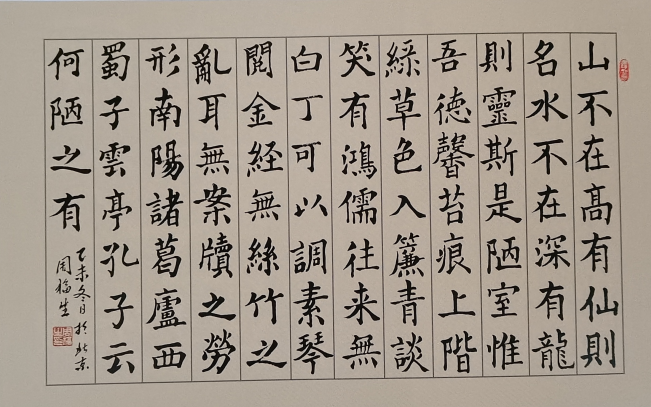 山不在髙有仙則
名水不在深有龍
則靈斯是陋室惟
吾徳馨苔痕上階
緑草色入簾青談
笑有鴻儒往来無
白丁可以調素琴
閲金経無絲竹之
亂耳無案牘之勞
形南陽諸葛廬西
蜀子雲亭孔子云
何陋之有
乙未冬日於北京
周福生